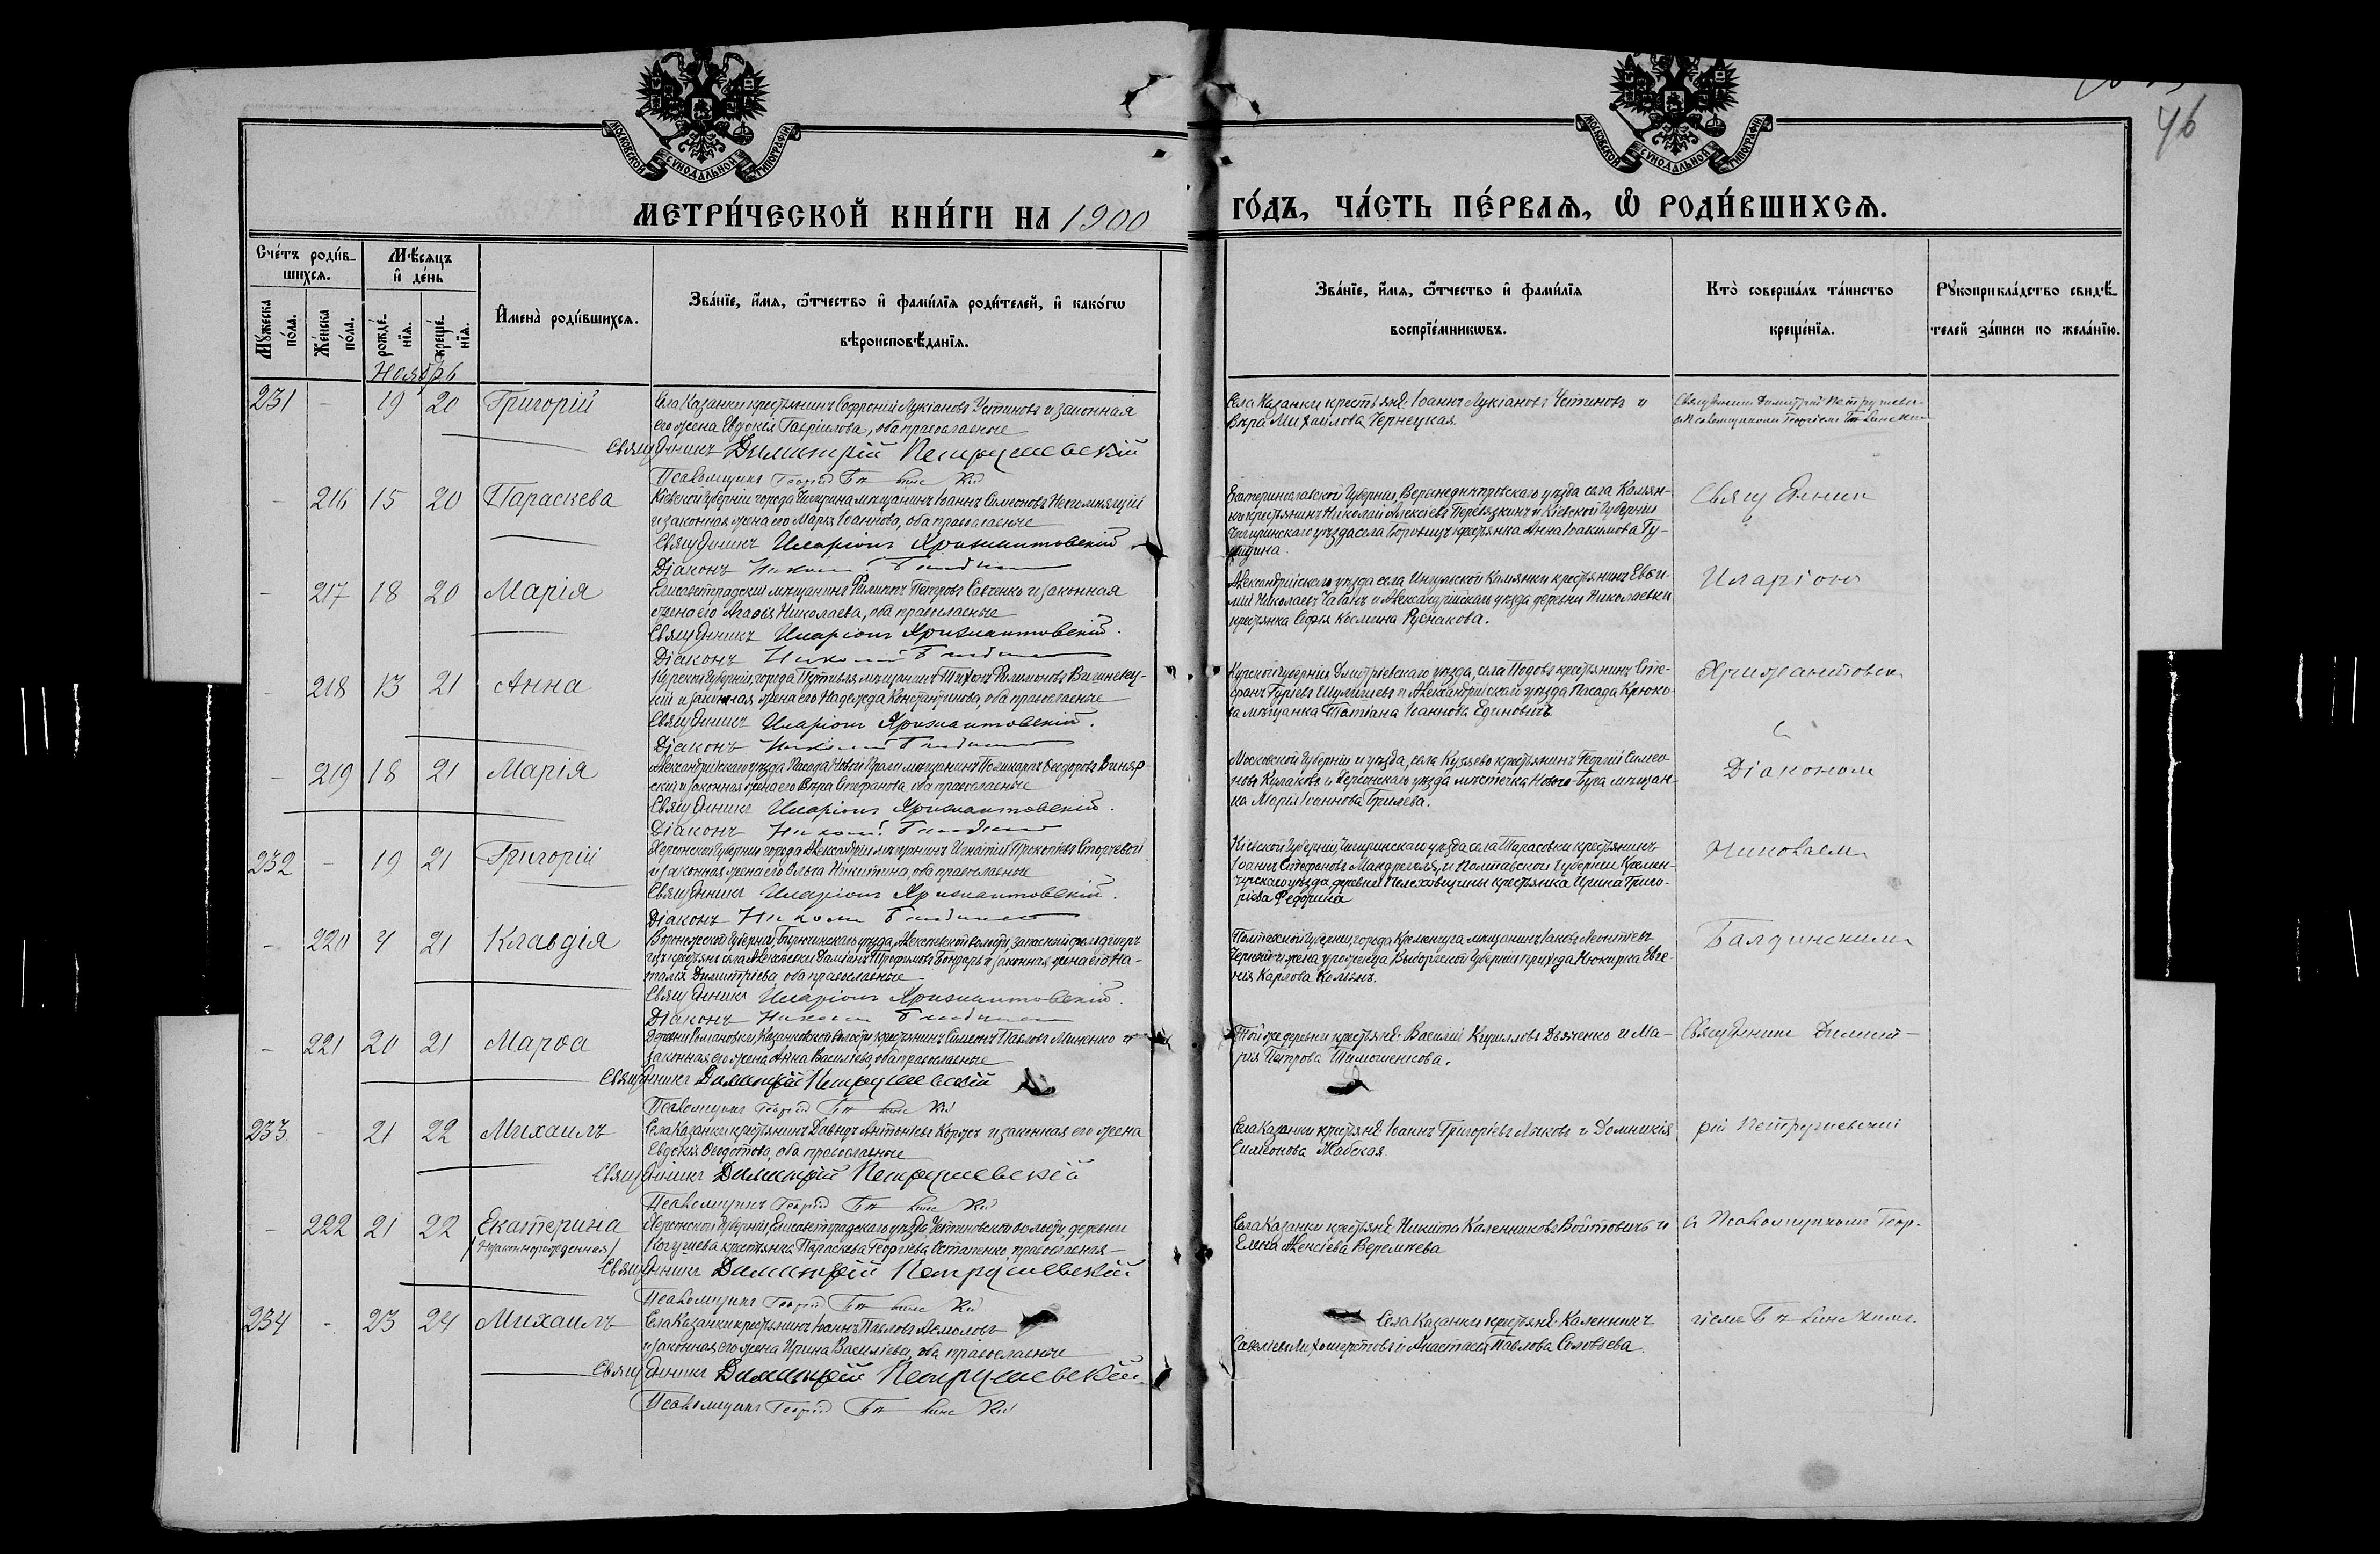 46
МОСКОВСКОЙ СѴНОДАЛЬНОЙ ТИПОГРАФІИ
МОСКОВСКОЙ СѴНОДАЛЬНОЙ ТИПОГРАФІИ
МЕТРИ́ЧЕСКОЙ КНИ́ГИ НА 1900
ГО́ДЪ, ЧА́СТЬ ПЕ́РВАѦ, Ѽ РОДИ́ВШИХСѦ.
Сче́тъ роди́в-
шихсѧ.
Мꙋжеска по́ла.
Же́нска по́ла.
Мѣ́сѧцъ
и҆ де́нь
рожде́-
нїѧ.
креще́-
нїѧ.
И҆мена̀ роди́вшихсѧ.
Зва́нїе, и҆́мѧ, ѻ҆́тчество и҆ фами́лїѧ роди́телей, и҆ како́гѡ
вѣроисповѣ́данїѧ.
Зва́нїе, и҆́мѧ, ѻ҆́тчество и҆ фами́лїѧ
воспрїе́мникѡвъ.
Кто̀ соверша́лъ та́инство
креще́нїѧ.
Рꙋкоприкла́дство свидѣ́-
телей за́писи по жела́нїю.
Ноябрь
231 - 19 20 Григорій
Села Казанки крестьянинъ Софроній Лукіановъ Устиновъ и законная
его жена Евдокія Гавріилова, оба православные
Священникъ Димитрій Петрушевскій
Псаломщикъ Георгій
Села Казанки крестьяне: Іоаннъ Лукіановъ Устиновъ и
Вѣра Михаилова Чернецкая.
Священникъ Димитрій Петрушевс-
съ Псаломщикомъ Георгіемъ
- 216 15 20 Параскева
Кіевской губерніи города Чигирина мѣщанинъ Іоаннъ Симеоновъ Непомнящій
и законная жена его Марія Іоаннова, оба православные
Священникъ Иларіонъ Хрисантовскій
Діаконъ Николай
Екатеринославской губерніи, Верхнеднѣпровскаго уѣзда села Камян-
ки крестьянинъ Николай Алексіевъ Перевязкинъ и Кіевской губерніи
Чигиринскаго уѣзда села Боровицъ крестьянка Анна Іоакимова
Священникъ
- 217 18 20 Марія
Елисаветградскій мѣщанинъ Филиппъ Петровъ Савченко и законная
жена его Агафія Николаева, оба православные
Священникъ Иларіонъ Хрисантовскій.
Діаконъ Николай
Александрійскаго уѣзда села Ингульской Камянки крестьянинъ Евѳи-
мій Николаевъ Чабанъ и Александрійскаго уѣзда деревни Николаевки
крестьянка Софія Космина Руснакова.
Иларіонъ
- 218 13 21 Анна
Курской губерніи, города Путивля мѣщанинъ Тихонъ Филимоновъ
и законная жена его Надежда Константинова, оба православные
Священникъ Иларіонъ Хрисантовскій.
Діаконъ Николай
Курской губерніи Дмитріевскаго уѣзда, села Подовъ крестьянинъ Сте-
фанъ Гуріевъ и Александрійскаго уѣзда Посада Крюко-
ва мѣщанка Татіана Іоаннова Единовичъ
съ
- 219 18 21 Марія
Александрійскаго уѣзда Посада Новой Праги мѣщанинъ Поликарпъ Ѳеодоровъ Виняр-
скій и законная жена его Вѣра Стефанова, оба православные
Священникъ Иларіонъ Хрисантовскій.
Діаконъ Николай
Московской губерніи и уѣзда, села Кузяево крестьянинъ Георгій Симео-
новъ Кулаковъ и Херсонскаго уѣзда мѣстечка Новаго-Буга мѣщан-
ка Марія Іоаннова
Діакономъ
232 - 19 21 Григорій
Херсонской губерніи города Александріи мѣщанинъ Игнатій Прокопіевъ
и законная жена его Ольга Никитина, оба православные
Священникъ Иларіонъ Хрисантовскій.
Діаконъ Николай
Кіевской губерніи, Чигиринскаго уѣзда села Тарасовки крестьянинъ
Іоаннъ Стефановъ и Полтавской губерніи Кремен-
чугскаго уѣзда, деревни Пелеховщины крестьянка Ирина Григо-
ріева
Николаемъ
- 220 4 21 Клавдія
Воронежской губерніи, Бирюченскаго уѣзда, Алексѣевской волости, запасной фельдшеръ
изъ крестьянъ села Алексѣевки Даміанъ Трофимовъ Бондарь и законная жена его На-
талія Димитріева, оба православные
Священникъ Иларіонъ Хрисантовскій.
Діаконъ Николай
Полтавской губерніи, города Кременчуга мѣщанинъ Іаковъ Леонтіевъ
Черной и жена Выборгской губерніи прихода Нюкирка Евге-
нія Карлова
Балдинскимъ
- 221 20 21 Марѳа
Деревни Романовки, Казанковской волости крестьянинъ Симеонъ Павловъ Миненко и
законная его жена Анна Василіева, оба православные
Священникъ Димитрій Петрушевскій
Псаломщикъ Георгій
Той же деревни крестьяне: Василій Кирилловъ Дьяченко и Ма-
рія Петрова Тимошенкова.
Священникъ Димит-
233 - 21 22 Михаилъ
Села Казанки крестьянинъ Давидъ Антоніевъ Корсъ и законная его жена
Евдокія Ѳеодотова, оба православные
Священникъ Димитрій Петрушевскій
Псаломщикъ Георгій
Села Казанки крестьяне: Іоаннъ Григоріевъ Ляховъ и Домникія
Симеонова
рій Петрушевскій
- 222 21 22 Екатерина
/Незаконнорожденная/
Херсонской губерніи, Елисаветградскаго уѣзда, Устиновской волости, деревни
крестьянка Параскева Георгіева Остапенко, православная
Священникъ Димитрій Петрушевскій
Псаломщикъ Георгій
Села Казанки крестьяне: Никита Каленниковъ Войтовичъ и
Елена Алексіева Веремѣева
съ Псаломщикомъ Геор-
234 - 23 24 Михаилъ
Села Казанки крестьянинъ Іоаннъ Павловъ
и законная его жена Ирина Василіева, оба православные
Священникъ Димитрій Петрушевскій
Псаломщикъ Георгій
Села Казанки крестьяне: Каленникъ
и Анастасія Павлова Соловьева
гіемъ